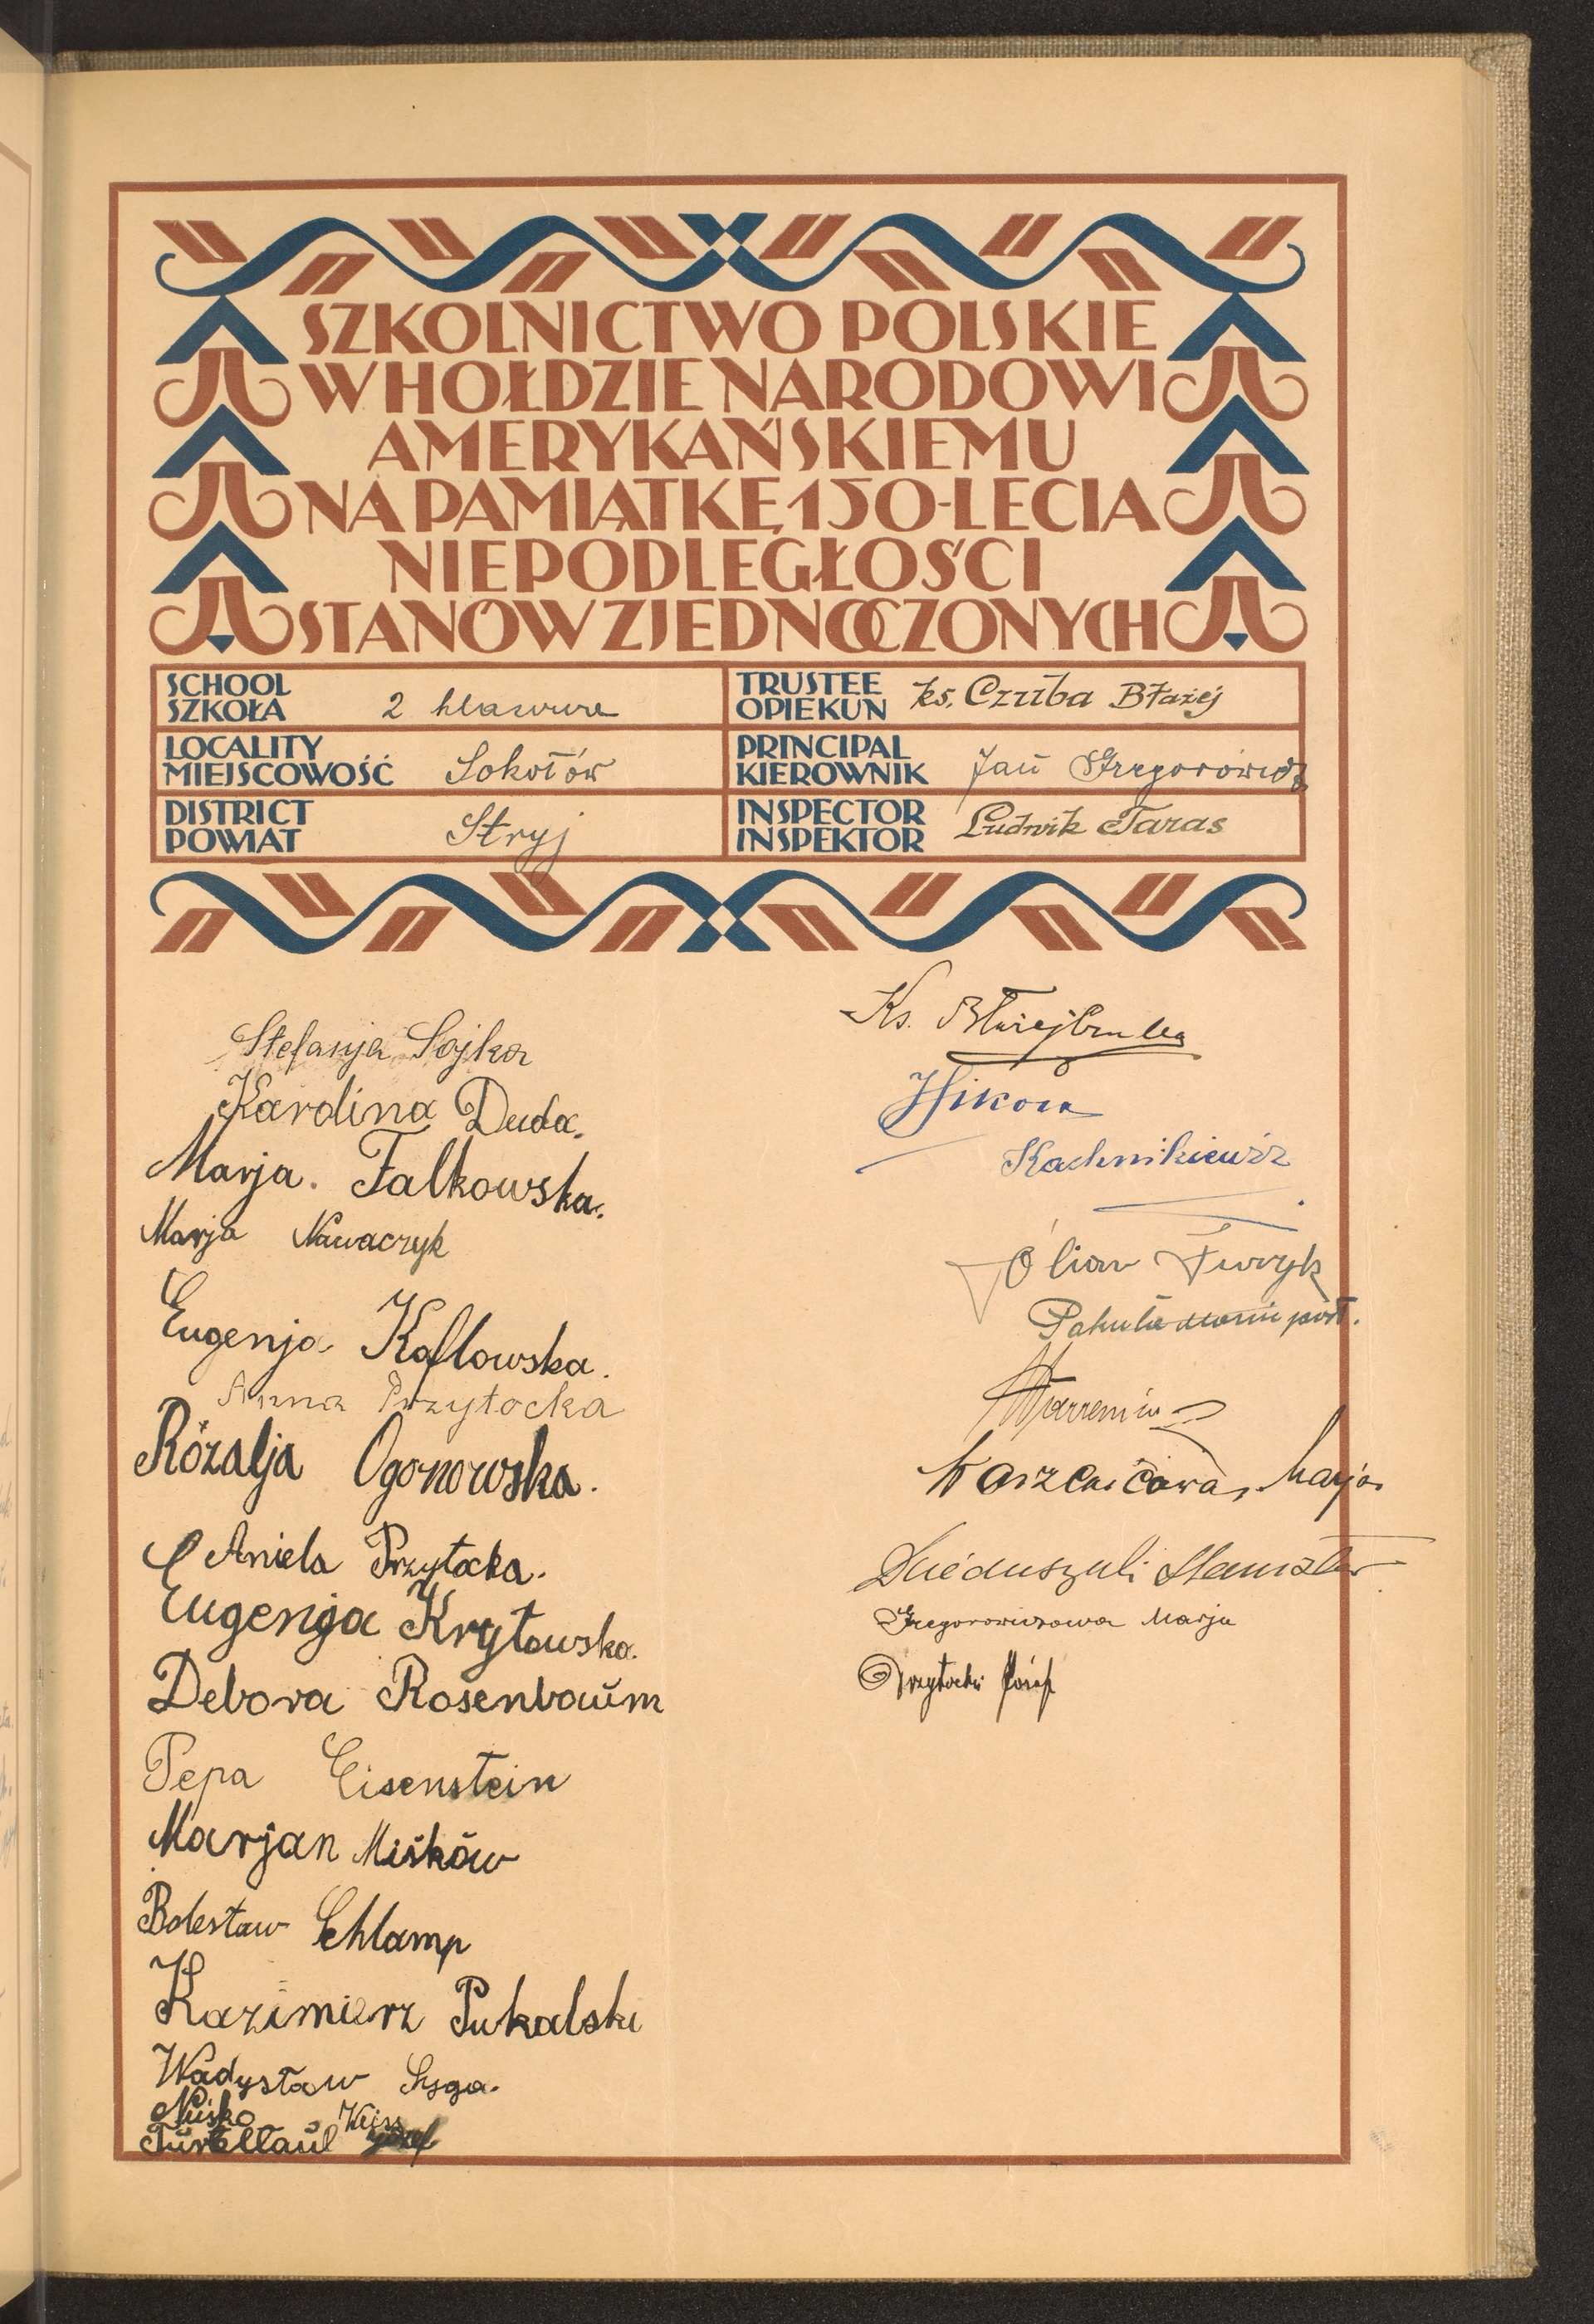 SZKOLNICTWO POLSKIE
W HOŁDZIE NARODOWI
AMERYKAŃSKIEMU
NA PAMIĄTKĘ 150-LECIA
NIEPODLEGŁOŚCI
STANÓW ZJEDNOCZONYCH
SCHOOL
SZKOŁA 2 klasowa
TRUSTEE
OPIEKUN ks. Czuba Błażej
LOCALITY
MIEJSCOWOŚĆ Sokołów
PRINCIPAL
KIEROWNIK Jan Gregorowicz
DISTRICT
POWIAT Stryj
INSPECTOR
INSPEKTOR Ludwik Taras
Stefanja Sojka
Karolina Duda.
Marja. Falkowska.
Marja Nawaczyk
Eugenja Koflowska.
Anna Przytocka
Rózalja Ogonowska.
Aniela Przytocka.
Eugenja Krytowska.
Debora Rosenbaum
Pepa Eisenstein
Marjan Miśków
Bolesław Schlamp
Kazimierz Pukalski
Wadysław Syga.
Misko
Turteltaul Józef
Ks. Błażej Czuba
Sikora
Kachnikiewicz
Marja
Gregorowiczowa Marja
Przytocki Józef